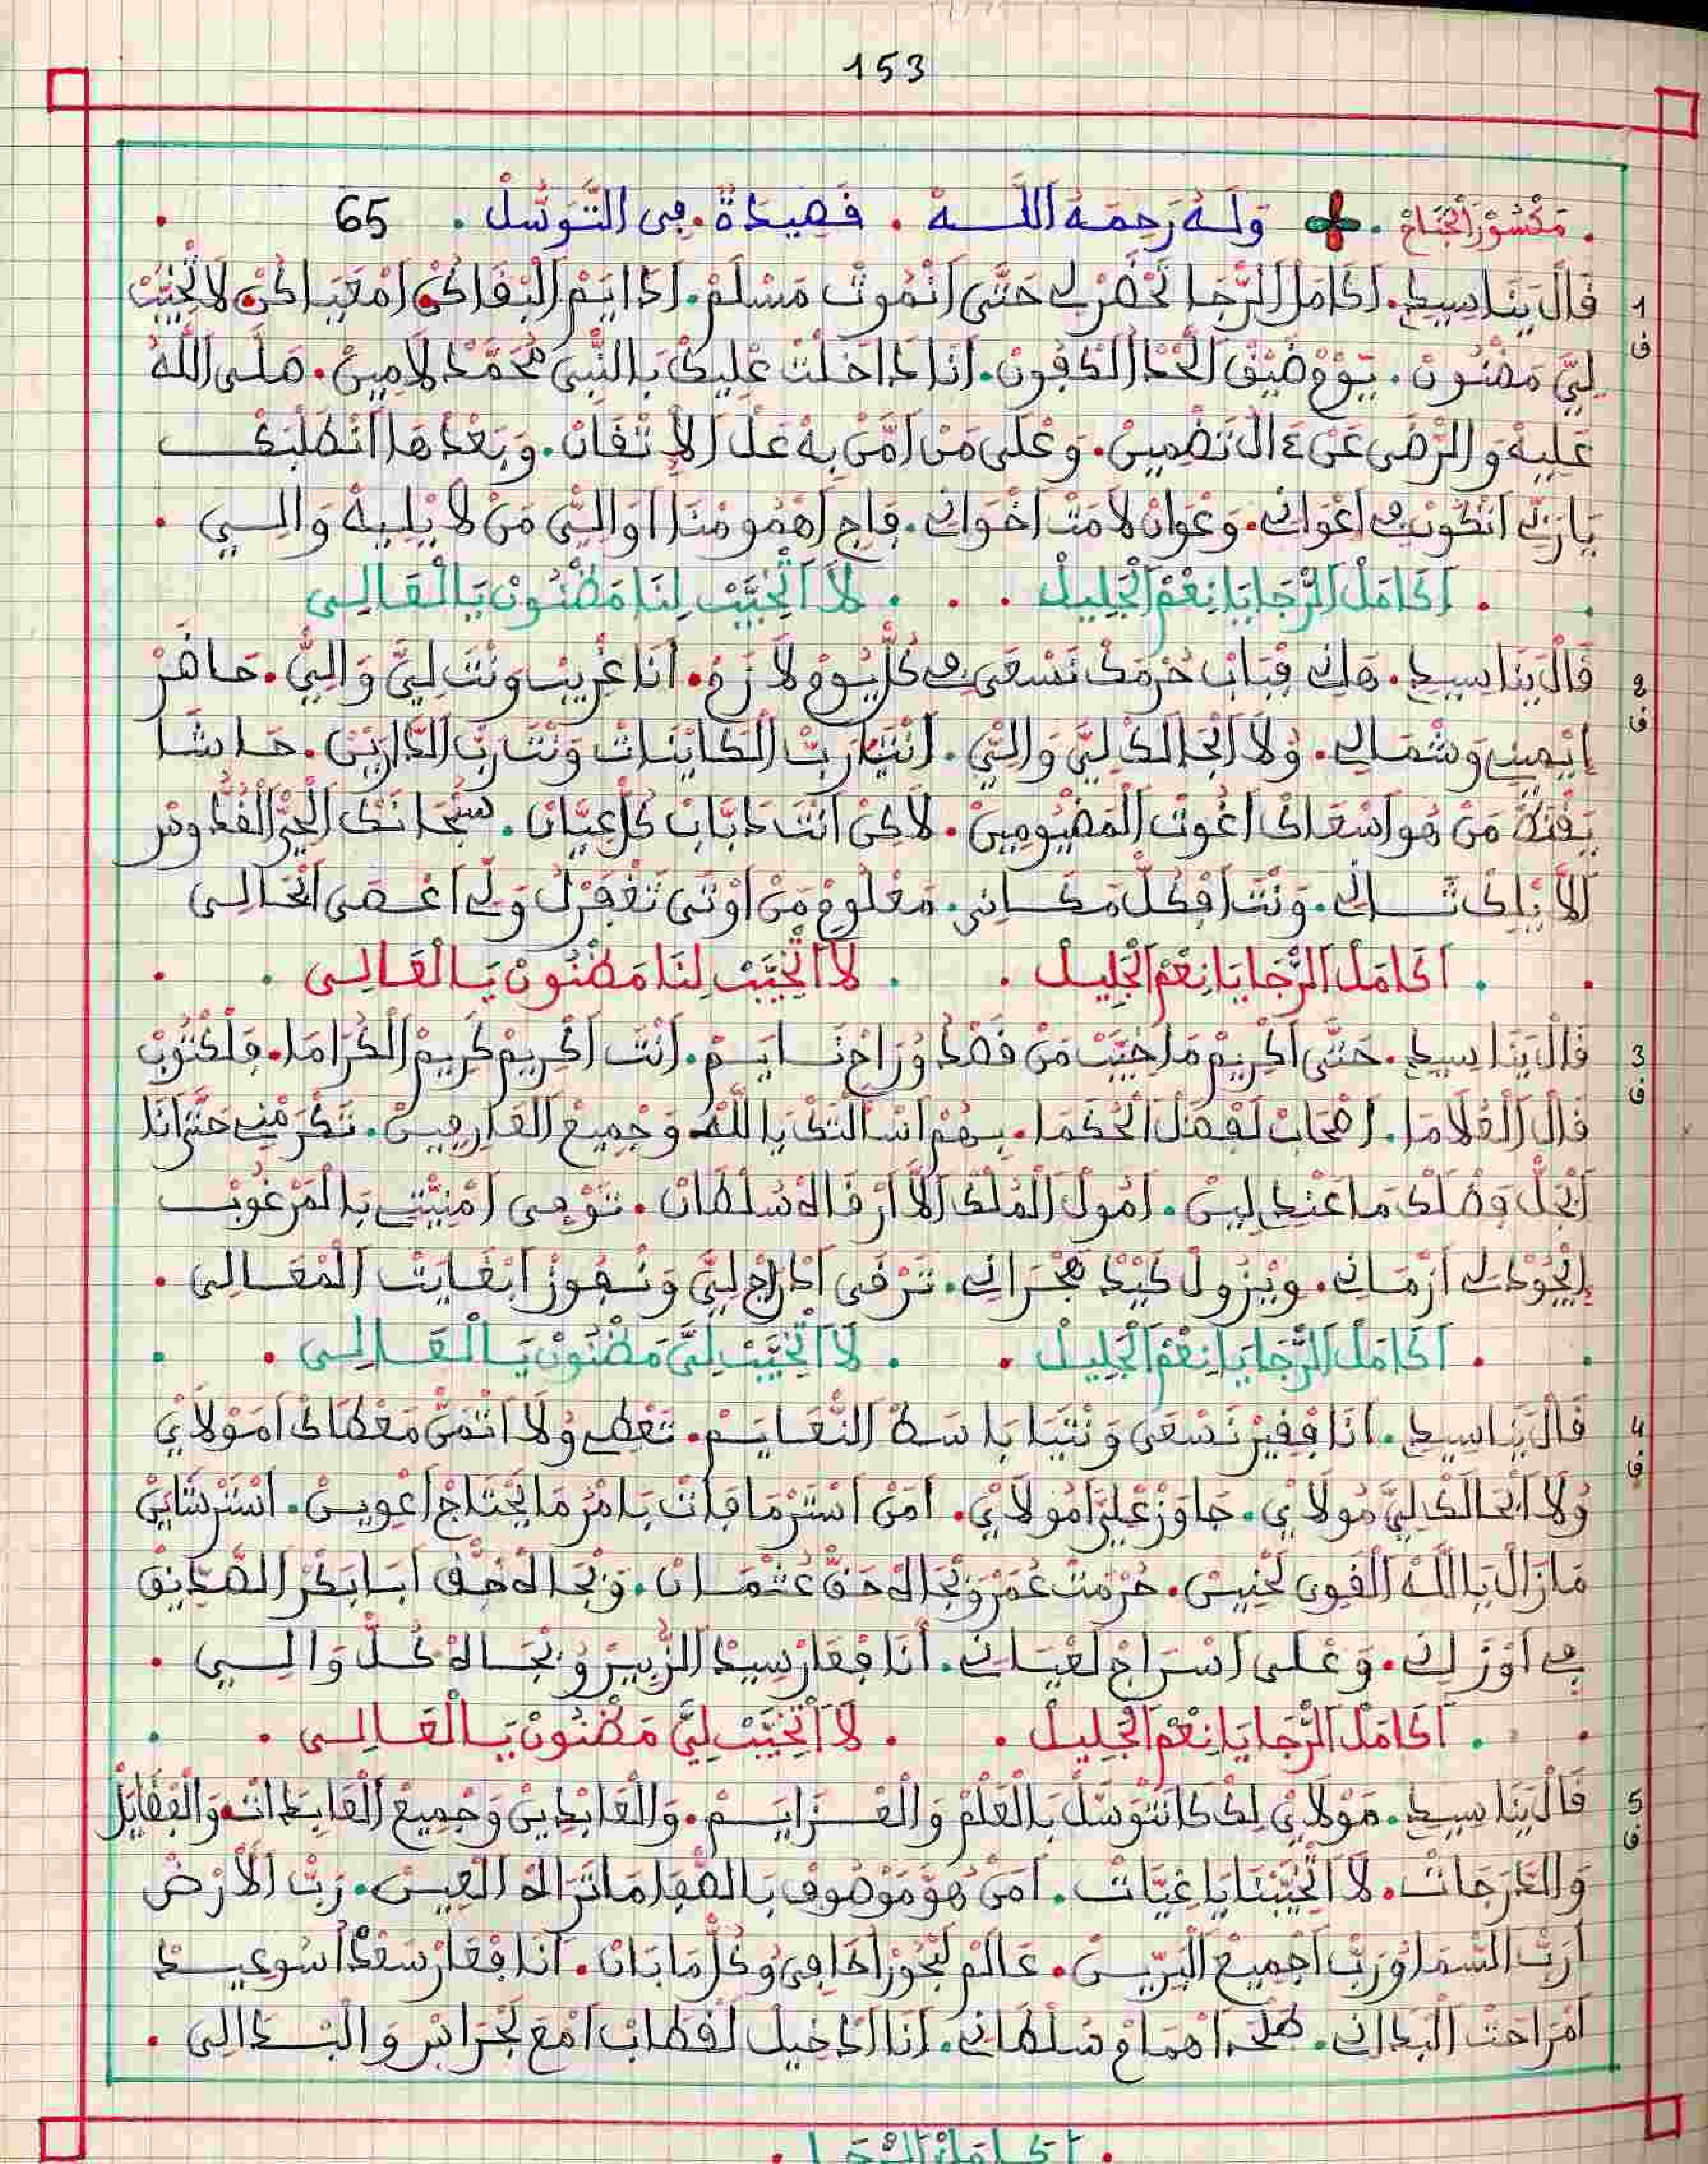 153
مَكْسُورْ الْجْنَاحْ . وَلَهُ رَحِمَهُ اللَّه . قَصِيدَةٌ . فِي التَّوَسُّلْ . 65
1 قَالْ يَنَا سِيدِي . اَكَامَلْ الرّْجَا تَحْضَرْ لِي حَتَّى اَنْمُوتْ مَسْلَمْ . اَدَايَمْ الْبْقَا كُنْ اَمْعَيَا كُنْ لَا تْخَيَّبْ
ف
لِيَّ مَضْنُونْ . يَوْمْ ضِيقْ الْحْدْ الدّْفُونْ . اَنَا دَاخَلْتْ عْلِيكْ بَالنّْبِي مُحَمَّدْ لَامِينْ . صَلَّى اللَّهُ
عَلِيهْ وَالرّْضَى عَنْ ءَالْ . وَعْلَى مَنْ اَمَّنْ بِهْ عَلْ الْإِتْقَانْ . وَبَعْدْهَا اَنْطَلْبَكْ
يَا رَبِّي اَتْكُونْ فِي اَعْوَانِي . وَعْوَانْ لَامَتْ اَخْوَانِي . فَاجِي اَهْمُومْنَا اَوَالِيِّ مَنْ لَا يْلِيهْ وَالِي .
اَكَامَلْ الرّْجَا يَا نِعْمْ الْجْلِيلْ . لَا اَتْخَيَّبْ لِنَا مَضْنُونْ يَا الْعَالِي
2 قَالْ يَنَا سِيدِي . هَانِي فْبَابْ حُرْمَكْ نَسْعَى فِي كُلّْ يُومْ لَازَمْ . اَنَا غْرِيبْ وَنْتَ لِيَّ وَالِيَّ . حَاضَرْ
ف
اِيْمِينِي وَشْمَالِي . وُلَا اَبْحَالَكْ لِيَّ وَالِيِّ . اَنْتَيَا رَبّْ الْكَايْنَاتْ وَنْتَ رَبّْ الدَّارِينْ . حَاشَا
مَنْ هُو اَسْعَاكْ اَغُوتْ الْمَضْيُومِينْ . لَاكِنْ اَنْتَ دَبَّابْ كُلّْ عَيَّانْ . سُبْحَانَكْ الْحَيّْ الْقُدُّوسْ
اَلَا يْلِكْ ثَانِي . وَنْتَ اَفْكُلّْ مَكَانِي . مَعْلُومْ مَنْ اَوْتَى تَغْفَرْ لُ وَلِّي اَعْصَى
اَكَامَلْ الرّْجَا يَا نِعْمْ الْجْلِيلْ . لَا اَتْخَيَّبْ لِنَا مَضْنُونْ يَا الْعَالِي
3 قَالْ يَنَا سِيدِي . حَتَّى اَكْرِيمْ مَا خَيَّبْ مَنْ قَصْدُ وُرَاحْ نَايَمْ . اَنْتَ اَكْرِيمْ كَرِيمْ الْكْرَامَا . فَلْكْتُوبْ
ف
قَالْ الْعُلَامَا . اَصْحَابْ لَفْضَلْ الْحُكَمَا . بِهُمْ اَسْالْتَكْ بَاللَّهْ وَجْمِيعْ الْعَارِفِينْ . تَكْرَمْنِي حَتَّى اَنَا
اَبْحَلّْ وَصْلَكْ مَا عَنْدِي لِينْ . اَمُولْ الْمُلْكْ اَلَا اَرْقَاهْ سُلْطَانْ . تَوْفِي اَمْنِيّْتِي بَالْمَرْغُوبْ
اِيْجُودْ لِي اَزْمَانِي . وِيْزُولْ كِيدْ هَجْرَانِي . تَرْقَى اَدْرَاجْ لِيَّ وَنْفُوزْ اَبْغَايْتْ الْمْعَالِي .
اَكَامَلْ الرّْجَا يَا نِعْمْ الْجْلِيلْ . لَا اَتْخَيَّبْ لِيَّ مَضْنُونْ يَا الْعَالِي
4 قَالْ يَنَا سِيدِي . اَنَا فْقِيرْ نَسْعَى وَنْتَيَا بَاسَطْ النّْعَايَمْ . تَعْطِي وُلَا اَتْمَنّْ مَعْطَاكْ اَمَوْلَايْ
ف
وُلَا اَبْحَالَكْ لِيَّ مُولَايْ . جَاوَزْ عْلِيَّ اَمُولَايْ . اَمَنْ اَسْتَرْ مَا فَاتْ بَامْرُ مَا يَحْتَاجْ اَعْوِينْ . اَسْتَرْ شَايَنْ
مَازَالْ يَا اللَّهْ الْقَوِي لَحْنِينْ . حُرْمْتْ عُمَرْ وَبْجَاهْ حَقّْ عُثْمَانْ . وَبْجَاهْ حَقّْ اَبَا بَكْرْ الصَّدِّيقْ
فِي اَوْزَانِي . وَعْلِي اَسْرَاجْ لَعْيَانِي . اَنَا فْعَارْ سِيدْ الزُّبِيرْ وُبْجَاهْ كُلّْ وَالِي .
اَكَامَلْ الرّْجَا يَا نِعْمْ الْجْلِيلْ . لَا اَتْخَيَّبْ لِيَّ مَضْنُونْ يَا الْعَالِي
5 قَالْ يَنَا سِيدِي . مَوْلَايْ لِكْ كَانَتْوَسَّلْ بَالْعَلْمْ وَالْعْزَايَمْ . وَالْعَابْدِينْ وَجْمِيعْ الْعَابْدَاتْ وَالْفْضَايَلْ
ف
وَالدَّرَجَاتْ . لَا اَتْخَيَّبْنَا يَا غِيَّاتْ . اَمَنْ هُوَ مَوْصُوفْ بَالصّْفَا مَا تْرَاهْ الْعِينْ . رَبّْ الْأَرْضْ
اَرَبّْ السّْمَا وُرَبّْ اَجْمِيعْ الْبَرِّينْ . عَالَمْ لَبْحُورْ اَخَافِي وُكُلّْ مَا بَانْ . اَنَا فْعَارْ سَعْدْ اَسُوعِيدْ
اَمْرَاحَتْ الْبْدَانِي . طَلْحَه اَهْمَامْ سُلْطَانِي . اَنَا الدّْخِيلْ لَقْطَابْ اَمْعَ لَجْرَاسْ وَالْبْدَالِي .
اَكَامَلْ الرّْجَا .